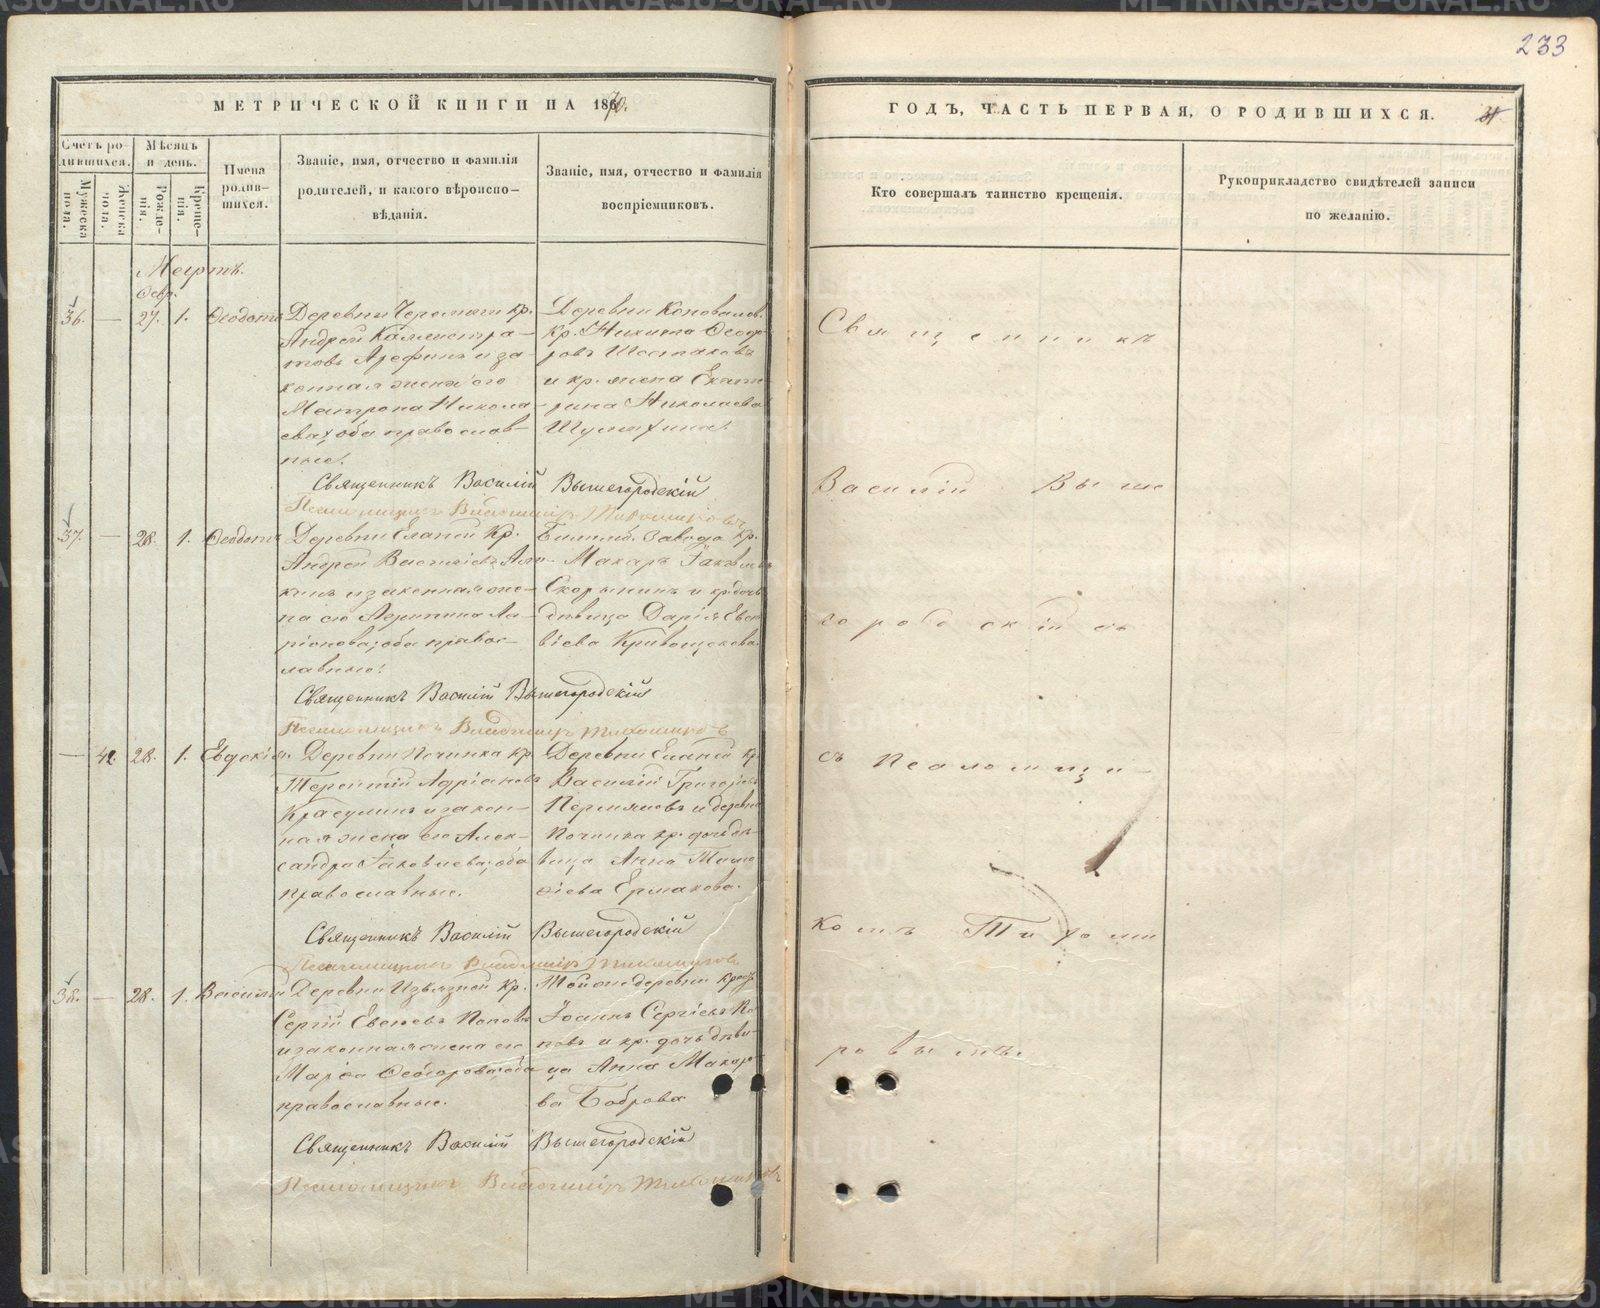 233
МЕТРИЧЕСКОЙ КНИГИ НА 1870.
ГОДЪ, ЧАСТЬ ПЕРВАЯ, О РОДИВШИХСЯ.
Счетъ родившихся.
Мужеска пола.
Женска пола.
Мѣсяцъ и день.
Рожденія.
Крещенія.
Имена родившихся.
Званіе, имя, отчество и фамилія
родителей, и какого вѣроиспо-
вѣданія.
Званіе, имя, отчество и фамилія
воспріемниковъ.
Кто совершалъ таинство крещенія.
Рукоприкладство свидѣтелей записи
по желанію.
Мартъ.
Февр.
36. — 27. 1. Ѳеодотъ
Деревни Черемши кр.
Андрей Каллистра-
товъ Арефинъ и за-
конная жена его
Матрона Никола-
ева, оба православ-
ные.
Деревни Коновалов.
кр. Никита Ѳеодо-
ровъ Шестаковъ
и кр. жена Екате-
рина Николаева
Священникъ Василій Вышегородскій
Псаломщикъ Владиміръ Тихомировъ
37. — 28. 1. Ѳеодотъ
Деревни Еланей Кр.
Андрей Васильевъ
и законная же-
на его Ла-
ріонова, оба правос-
лавные.
Билимб. Завода кр.
Макаръ Іаковлевъ
Скорынинъ и кр. дочь
дѣвица Дарія
Кривощекова
Священникъ Василій Вышегородскій
Псаломщикъ Владиміръ Тихомировъ
— 42. 28. 1. Евдокія.
Деревни Починка кр.
Терентій Адріановъ
Красулинъ и закон-
ная жена его Алек-
сандра Іаковлева, оба
православные.
Деревни Еланей кр.
Василій Григорьевъ
Пермяковъ и деревни
Починка кр. дочь дѣ-
вица Анна Тимо-
ѳіева Ермакова.
Священникъ Василій Вышегородскій
Псаломщикъ Владиміръ Тихомировъ
38. — 28. 1. Василій
Деревни Извязной Кр.
Сергій Попов
и законная жена его
Марѳа Ѳеодорова, оба
православные.
Той же деревни крест.
Іоаннъ Сергіевъ По-
повъ и кр. дочь дѣви-
ца Анна Макаро-
ва Боброва
Священникъ Василій Вышегородскій
Псаломщикъ Владиміръ Тихомировъ
Священникъ
Василій Выше
городскій съ
съ Псаломщи-
комъ Тихоми
ровымъ.
METRIKI.GASO-URAL.RU